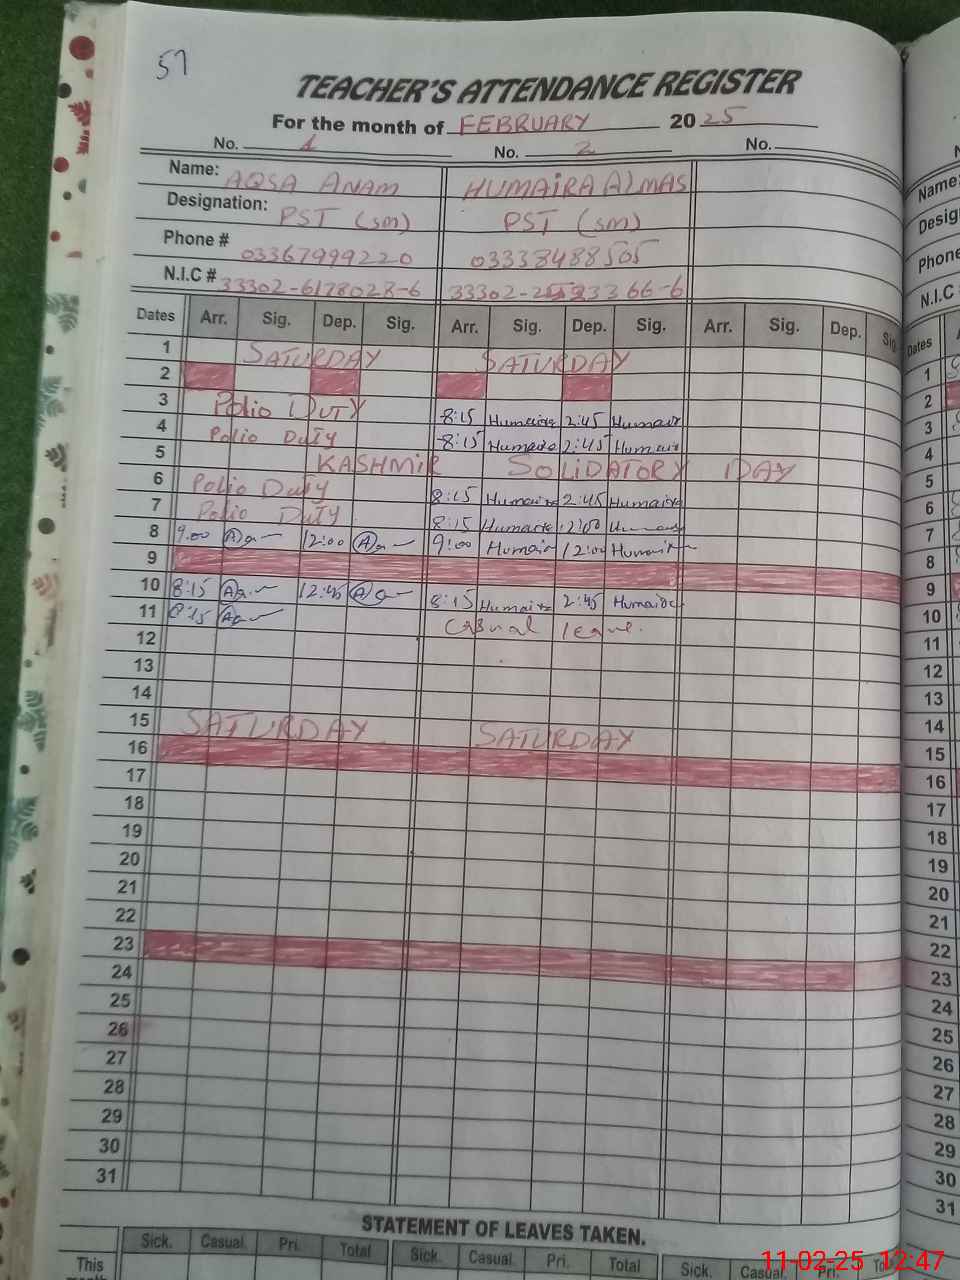 57
TEACHER'S ATTENDANCE REGISTER
For the month of FEBRUARY 2025
No. 1 No. 2 No.
Name: AQSA ANAM HUMAIRA ALMAS
Designation: PST (sm) PST (sm)
Phone # 03367999220 03338488505
N.I.C # 33302-6178028-6 33302-
Dates Arr. Sig. Dep. Sig. Arr. Sig. Dep. Sig. Arr. Sig. Dep. Sig
1 SATURDAY SATURDAY
2
3 Polio DUTY 8:15 Humaira 2:45 Humaira
4 Polio Duty 8:15 Humaira 2:45 Humaira
5 KASHMIR SOLIDATORY DAY
6 Polio Duty 8:15 Humaira 2:45 Humaira
7 Polio DUTY 8:15 Humaira 12:00 Humaira
8 9:00 12:00 9:00 Humair 12:00 Humaira
9
10 8:15 12:45 8:15 Humaira 2:45 Humaira
11 8:15 Casual leave.
12
13
14
15 SATURDAY SATURDAY
16
17
18
19
20
21
22
23
24
25
26
27
28
29
30
31
STATEMENT OF LEAVES TAKEN.
Sick. Casual. Pri. Total Sick. Casual. Pri. Total Sick. Casual. Pri. To
This
month
Name:
Desig
Phone
N.I.C
Dates
1
2
3
4
5
6
7
8
9
10
11
12
13
14
15
16
17
18
19
20
21
22
23
24
25
26
27
28
29
30
31
11-02-25 12:47